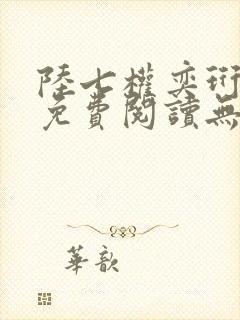 陸七權奕珩
免費閱讀無
華歆